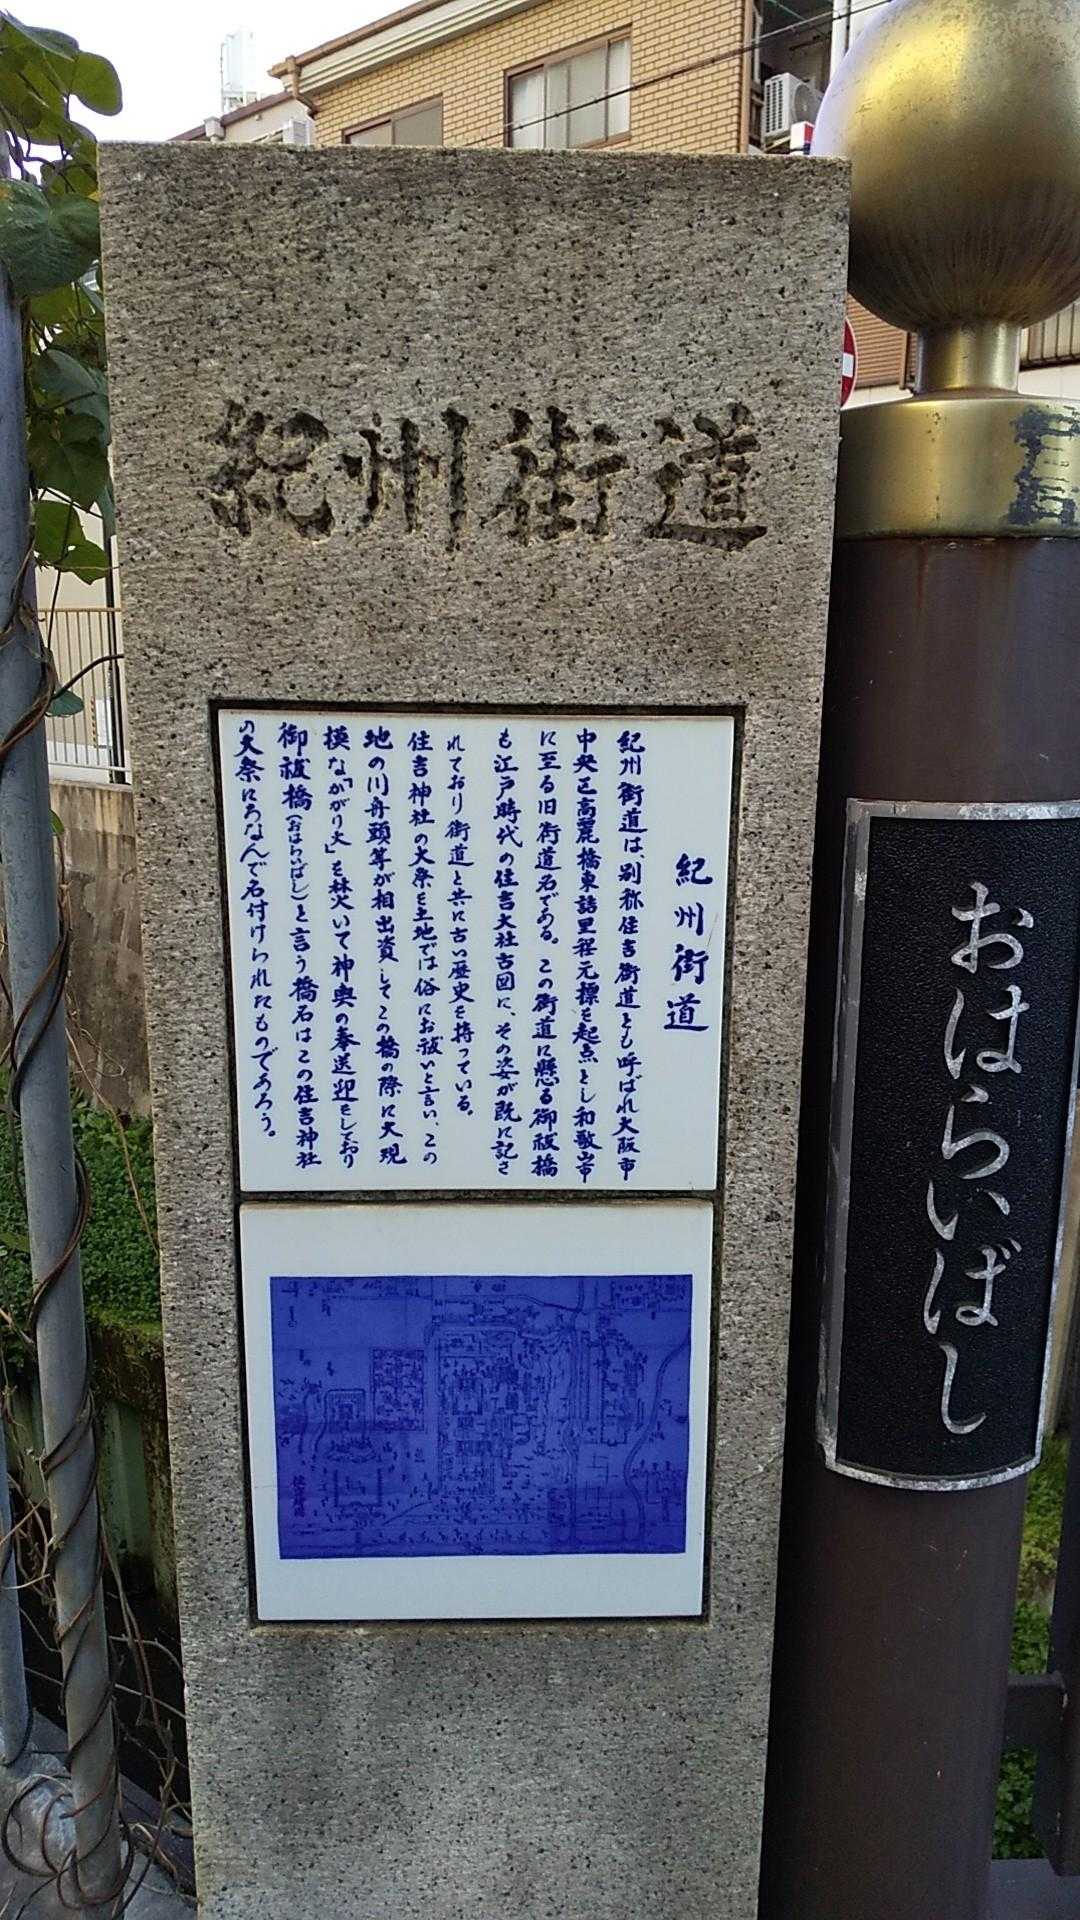 紀州街道
紀州街道
紀州街道は、別称住吉街道とも呼ばれ大阪市
中央区高麗橋東詰里程元標を起点とし和歌山市
に至る旧街道名である。この街道に懸る御祓橋
も江戸時代の住吉大社古図に、その姿が既に記さ
れており街道と共に古い歴史を持っている。
住吉神社の大祭を土地では俗にお祓いと言い、この
地の川舟頭等が相出資してこの橋の際に大規
模な「かがり火」を焚いて神輿の奉送迎をしており
御祓橋(おはらいばし)と言う橋名はこの住吉神社
の大祭にちなんで名付けられたものであろう。
おはらいばし